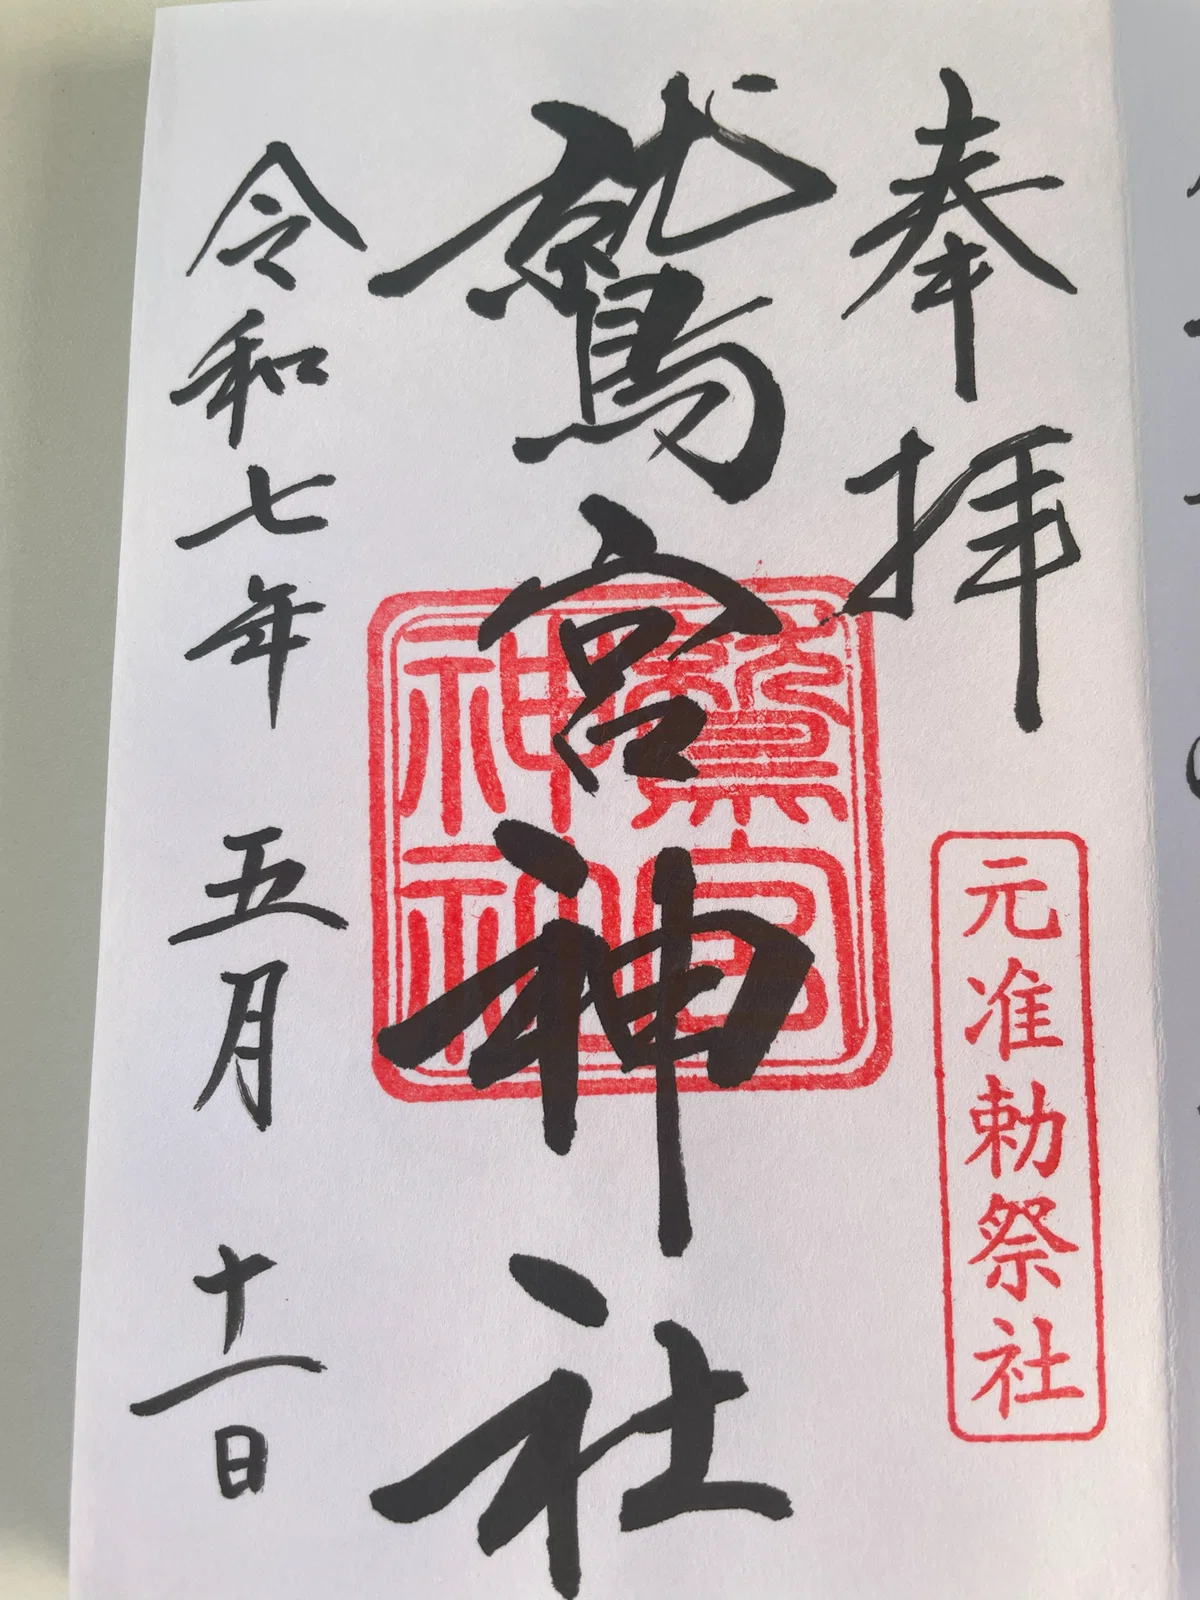 奉拝
元准勅祭社
鷲宮神社
鷲宮
神社
令和七年 五月 十一日